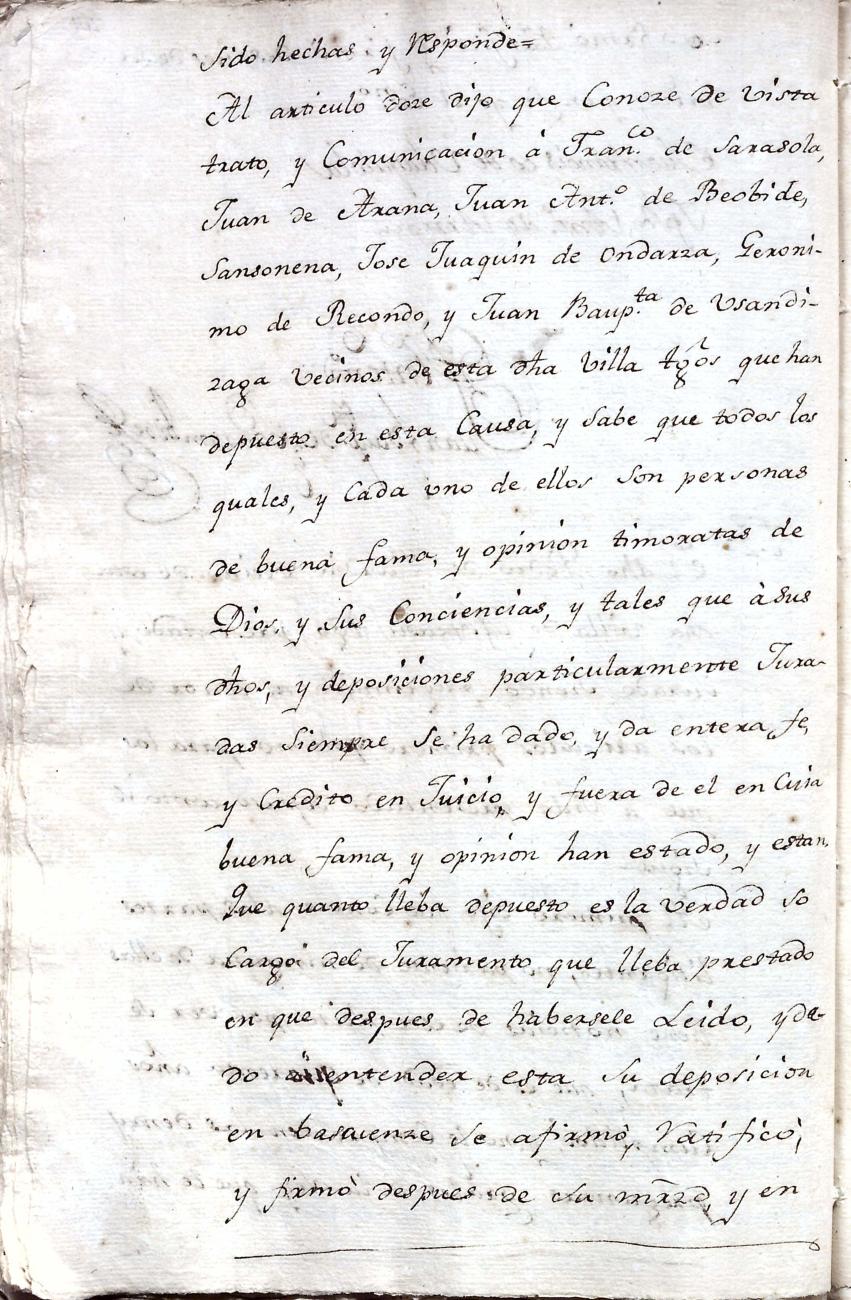 sido hechas y Responde=
Al articulo doze dijo que Conoze de vista
trato, y Comunicacion á Fran.co de Sarasola,
Juan de Arana, Juan Ant.o de Beobide,
Sansonena, Jose Juaquin de Ondarza, Geroni-
mo de Recondo, y Juan Baup.ta de Usandi-
zaga vecinos de esta dha villa tgõs que han
depuesto en esta Causa, y sabe que todos los
quales, y Cada uno de ellos son personas
de buena fama, y opinion timoratas de
Dios, y sus Conciencias, y tales que à sus
dhos, y deposiciones particularmente Jura-
das siempre se ha dado, y da entera fe,
y Credito en Juicio, y fuera de el en Cuia
buena fama, y opinion han estado, y estan,
Que quanto lleba depuesto es la verdad so
Cargo del Juramento que lleba prestado
en que despues de habersele Leido, y da-
do à entender esta su deposicion
en bascuenze se afirmò, Ratificò,
y firmò despues de su mrzd, y en